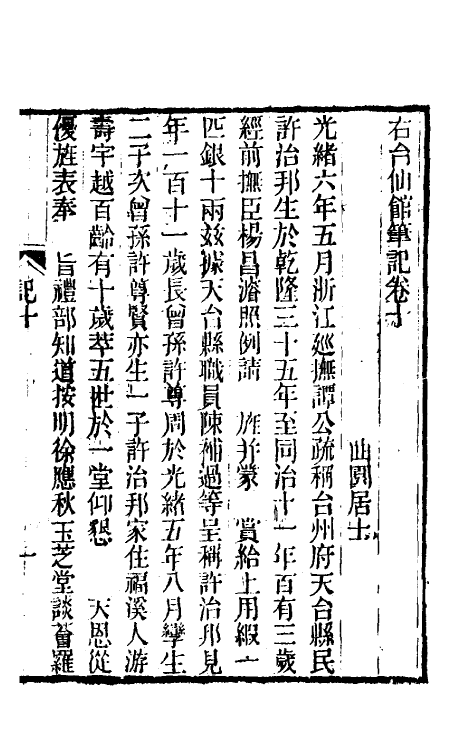 右台仙館筆記卷十
曲園居士
光緒六年五月浙江巡撫譚公疏稱台州府天台縣民
許治邦生於乾隆三十五年至同治十一年百有三歲
經前撫臣楊昌濬照例請　旌并蒙　賞給上用緞一
匹銀十兩茲據天台縣職員陳補過等呈稱許治邦見
年一百十一歲長曾孫許尊周於光緒五年八月孿生
二子次曾孫許尊賢亦生一子許治邦家住福溪人游
壽宇越百齡有十歲萃五世於一堂仰懇　天恩從
優旌表奉　旨禮部知道按明徐應秋玉芝堂談薈羅
記十
一